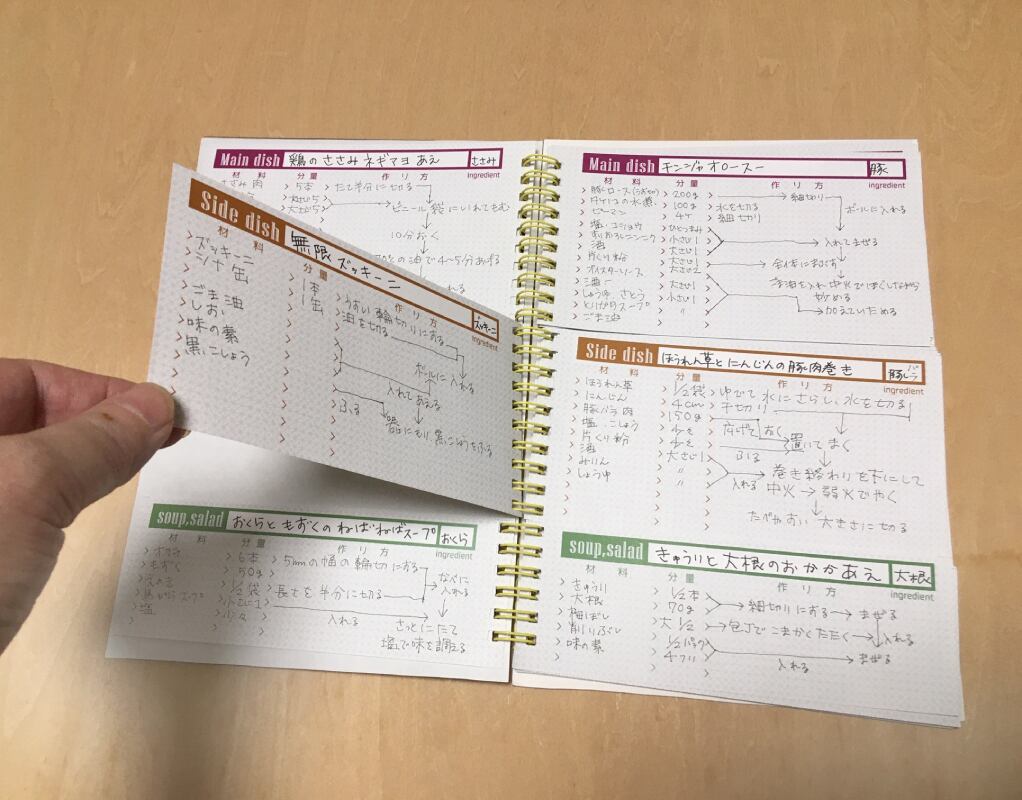 Main dish 鶏のささみネギマヨあえ ささみ
材料 分量 作り方 ingredient
ささみ肉 5本 たて半分に切る
大さじ5 ビニール袋にいれてもむ
大さじ5
10分おく
の油で4~5分あげる
Side dish 無限ズッキーニ ズッキーニ
材料 分量 作り方 ingredient
ズッキーニ 1本 うすい輪切りにする
シナ缶 1缶 油を切る
ごま油 ボールに入れる
しお
味の素 入れてあえる
黒こしょう ふる 器にもり、黒こしょうをふる
soup,salad おくらともずくのねばねばスープ おくら
材料 分量 作り方 ingredient
オクラ 6本 5mmの幅の輪切りにする なべに入れる
もずく 50g
えのき 1/2袋 長さを半分に切る
鳥がらスープ 小さじ1 入れる さっとにたて
塩 少々 塩で味を調える
Main dish チンジャオロースー 豚
材料 分量 作り方 ingredient
豚ロース 200g 細切り ボールに入れる
タケノコの水煮 100g 水を切る
ピーマン 4ケ 細切り
塩・コショウ ひとつまみ
すりおろしニンニク 小さじ1 入れてまぜる
酒 大さじ1
片くり粉 大さじ2 全体にまぶす
オイスターソース 大さじ1
しょうゆ さとう 小さじ1
とりがらスープ 〃 加えていためる
ごま油
Side dish ほうれん草とにんじんの豚肉巻き 豚バラ
材料 分量 作り方 ingredient
ほうれん草 1/2袋 ゆでて水にさらし、水を切る
にんじん 4cm 千切り
豚バラ肉 150g 広げておく 置いてまく
塩・こしょう 少々 ふる
片くり粉 少々
酒 大さじ1 入れる 巻き終わりを下にして
みりん 〃 中火→弱火でやく
しょうゆ 〃
たべやすい大きさに切る
soup,salad きゅうりと大根のおかかあえ 大根
材料 分量 作り方 ingredient
きゅうり 1/2本 細切りにする まぜる
大根 70g
梅ぼし 大1/2 包丁でこまかくたたく 入れる
削りぶし 1/2パック 入れる まぜる
味の素 4フリ